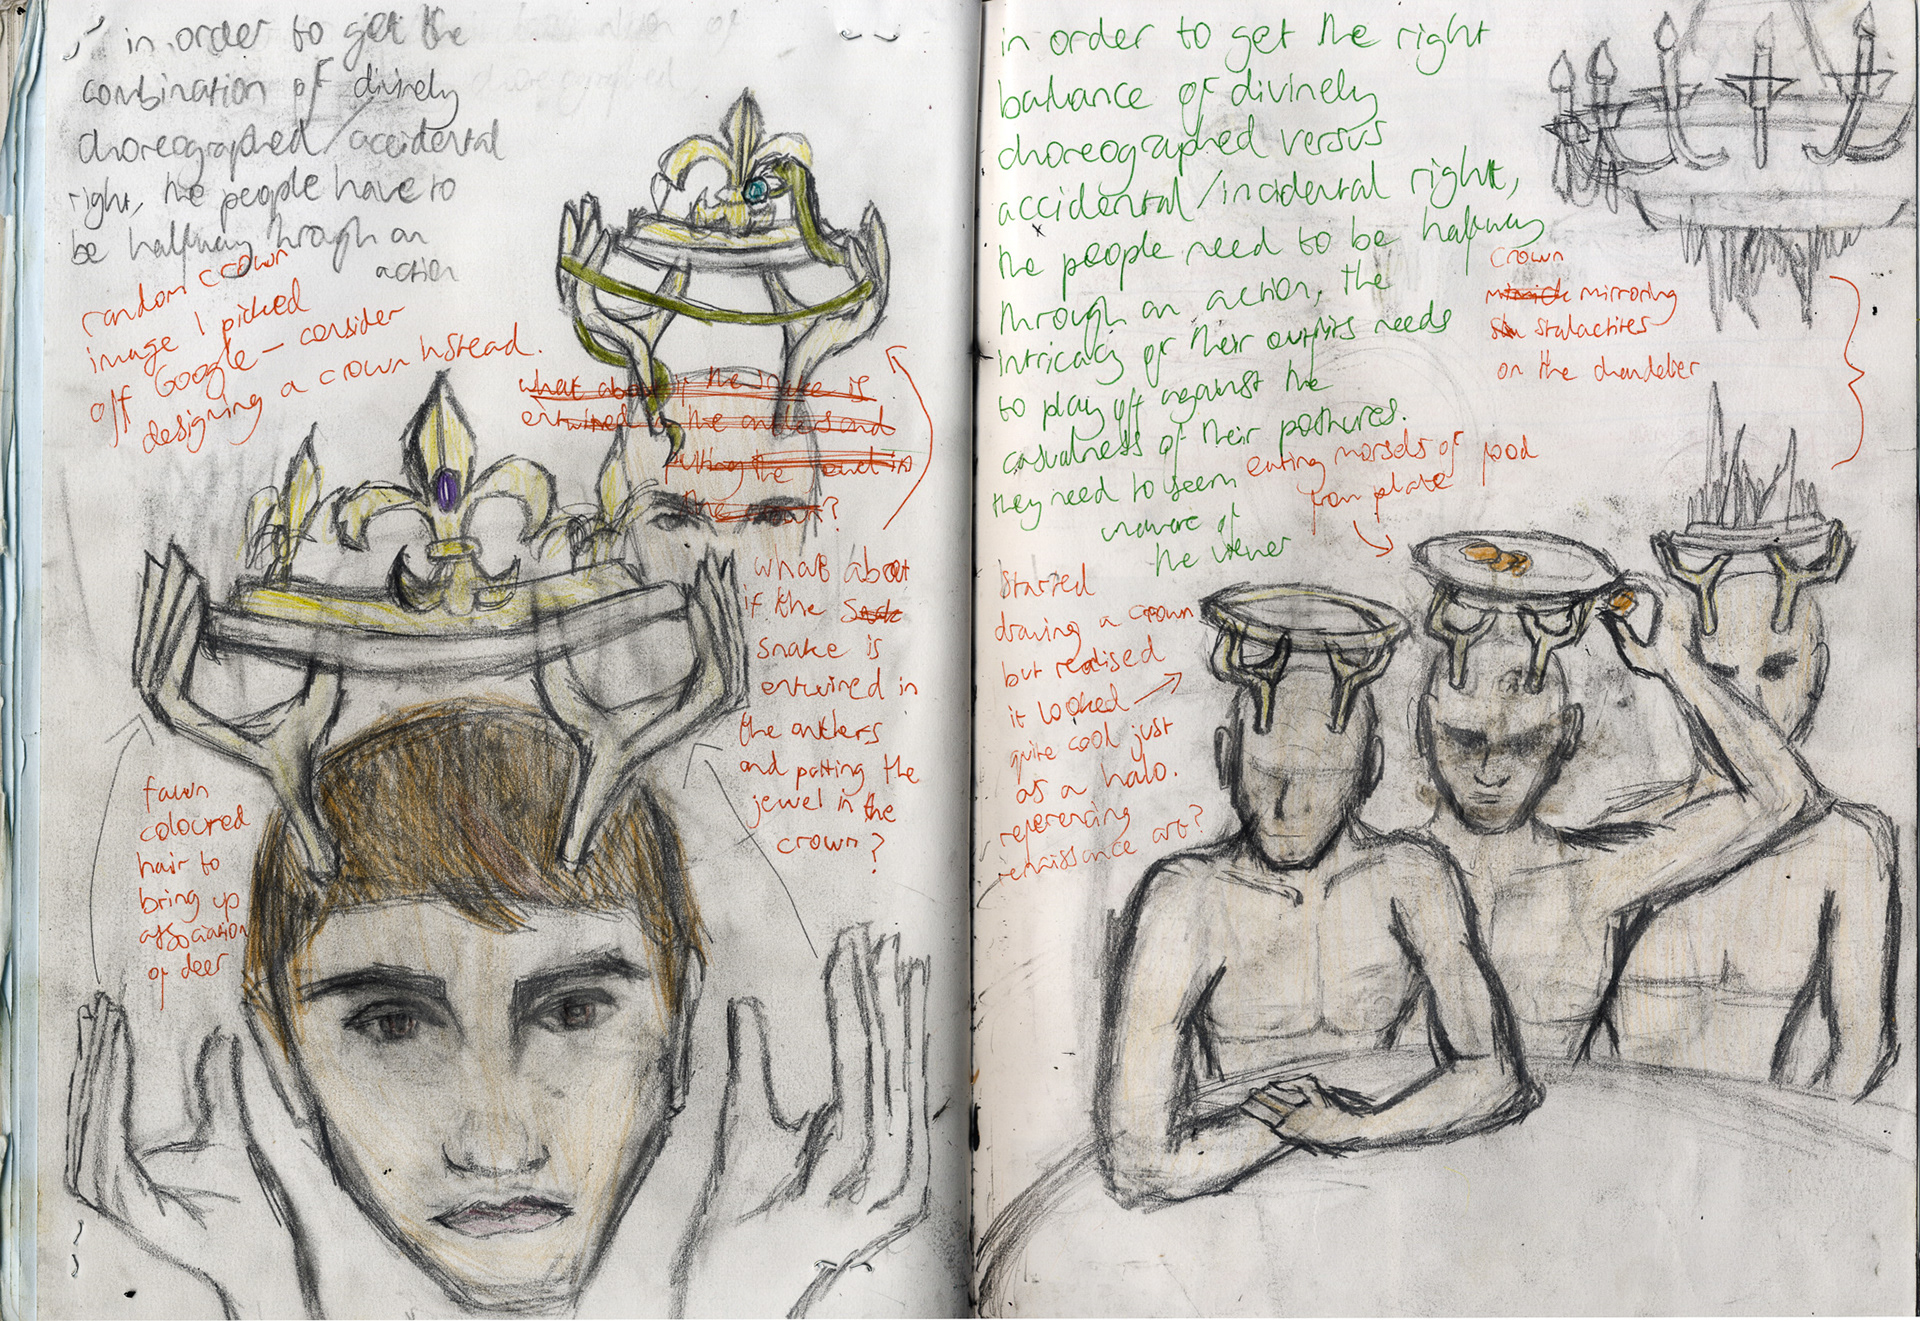 in order to get the
combination of divinely
choreographed/accidental
right, the people have to
be halfway through an
action
random crown
image I picked
off Google - consider
designing a crown instead.
what about if the snake is
entwined in the antlers and
putting the jewel in
the crown?
what about
if the
snake is
entwined in
the antlers
and putting the
jewel in the
crown?
fawn
coloured
hair to
bring up
association
of deer
in order to get the right
balance of divinely
choreographed versus
accidental/incidental right,
the people need to be halfway
through an action, the
intricacy of their outfits needs
to play off against the
casualness of their postures.
they need to seem
unaware of
the viewer
eating morsels of food
from plate
crown
mimick mirroring
stalactites
on the chandelier
Started
drawing a crown
but realised
it looked
quite cool just
as a halo.
referencing
renaissance art?